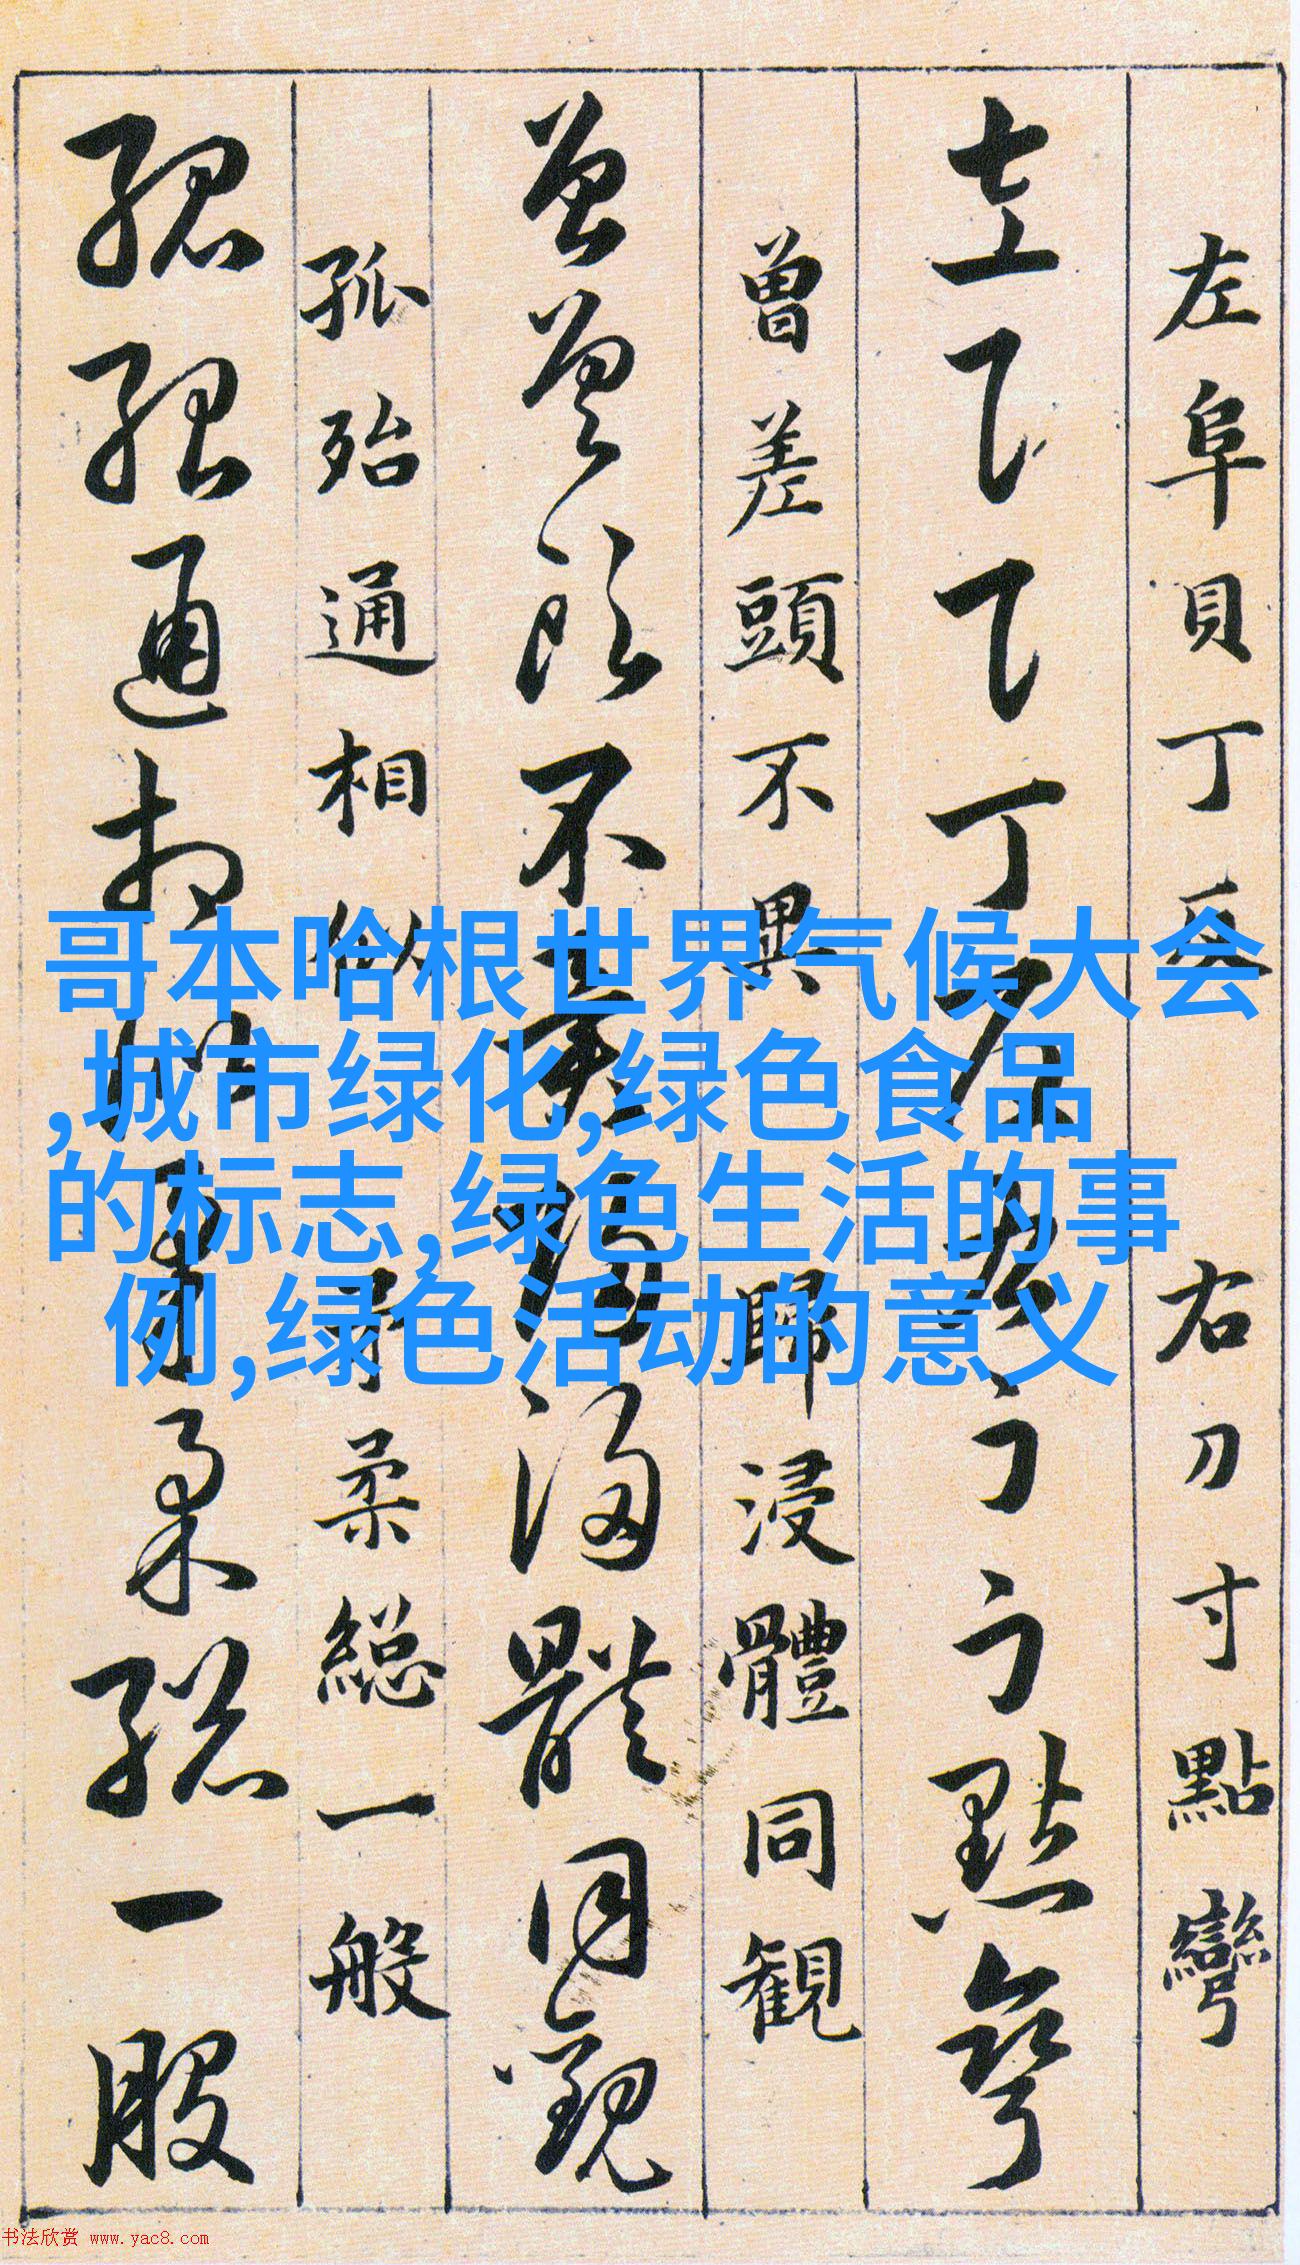 左阜貝丁反右刀寸點彎
左阜貝丁反右刀寸點彎
曾差頭不異歸浸體同観
曾差頭不異歸浸體同觀
孤殆通相似矛柔総一般
孤殆通相似矛柔総一般
哥本哈根世界气候大会
,城市绿化,绿色食品
的标志,绿色生活的事
例,绿色活动的意义
书法欣赏 www.yac8.com